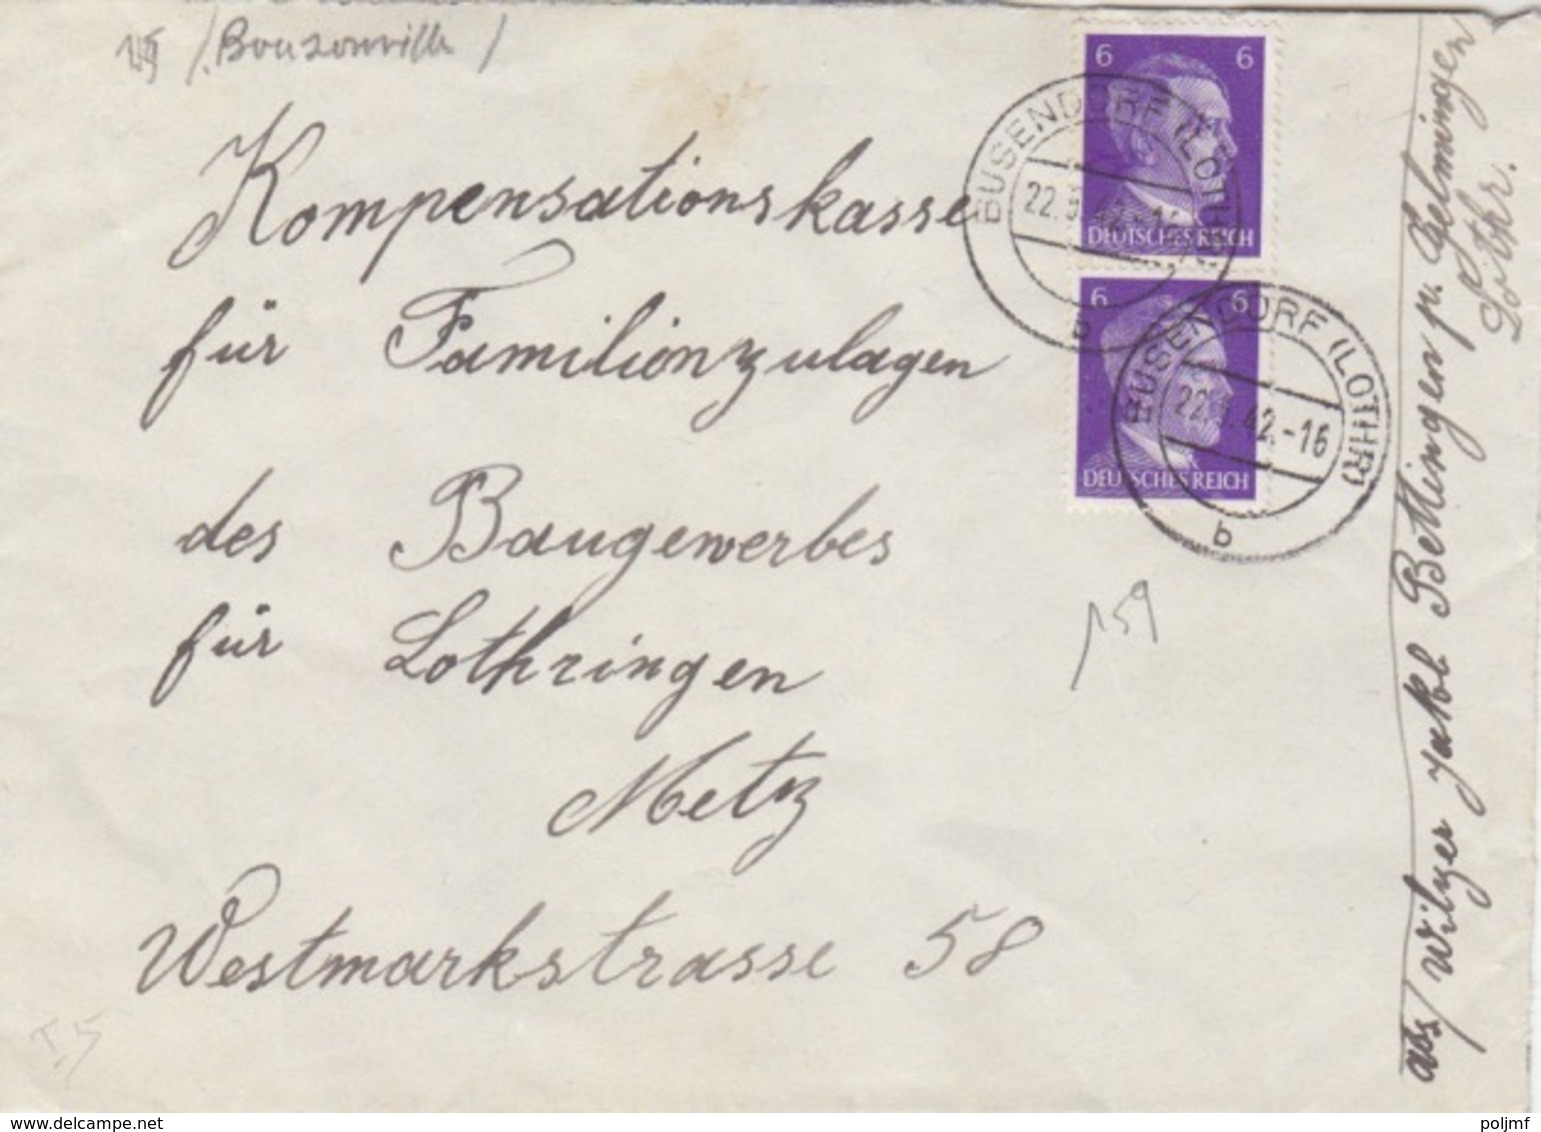 (Bouzonville)
6 6
DEUTSCHES REICH
BUSENDORF (LOTHR)
22. 42.-16
b
6 6
DEUTSCHES REICH
BUSENDORF (LOTHR)
22. 42.-16
b
Kompensationskasse
für Familionzulagen
des Baugewerbes
für Lothringen
Metz
Westmarkstrasse 58
159
I 5
abs/ Wilzer Jakob Bettingen p. Gelmingen
Lothr.
www.delcampe.net
poljmf